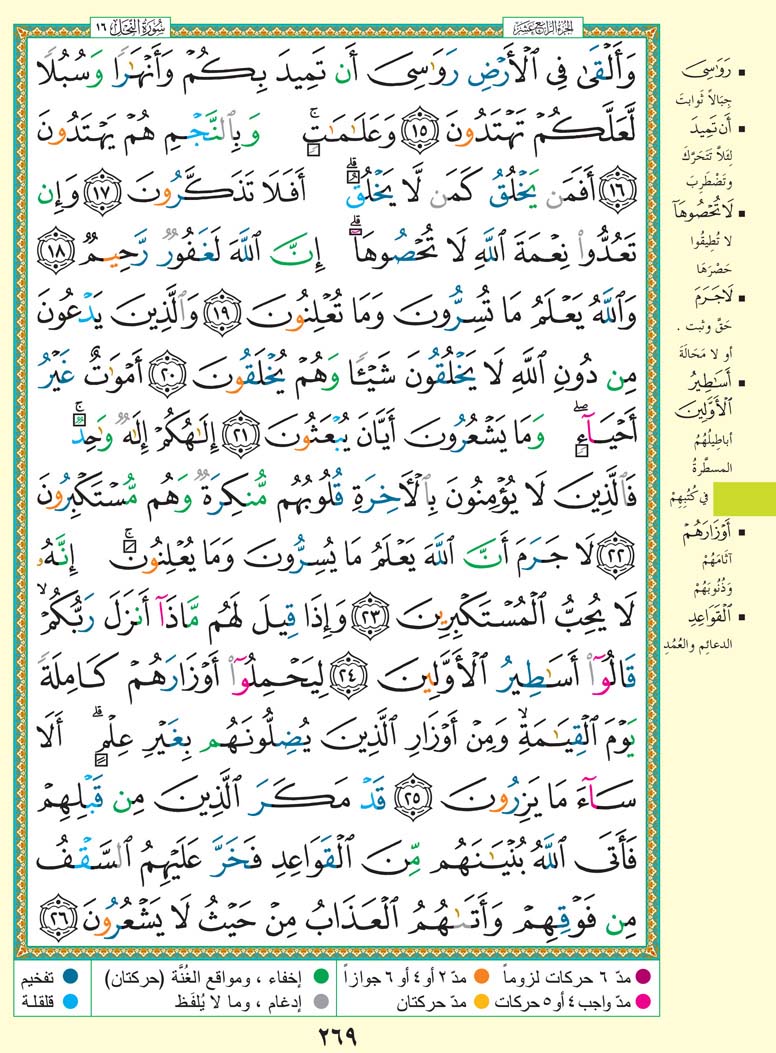 سُورَةُ النَّحۡل ١٦
الجُزءُ الرَّابِعَ عَشَرَ
وَأَلۡقَىٰ فِي ٱلۡأَرۡضِ رَوَٰسِيَ أَن تَمِيدَ بِكُمۡ وَأَنۡهَٰرٗا وَسُبُلٗا
لَّعَلَّكُمۡ تَهۡتَدُونَ ١٥ وَعَلَٰمَٰتٖۚ وَبِٱلنَّجۡمِ هُمۡ يَهۡتَدُونَ
١٦ أَفَمَن يَخۡلُقُ كَمَن لَّا يَخۡلُقُۗ أَفَلَا تَذَكَّرُونَ ١٧ وَإِن
تَعُدُّواْ نِعۡمَةَ ٱللَّهِ لَا تُحۡصُوهَآۗ إِنَّ ٱللَّهَ لَغَفُورٞ رَّحِيمٞ ١٨
وَٱللَّهُ يَعۡلَمُ مَا تُسِرُّونَ وَمَا تُعۡلِنُونَ ١٩ وَٱلَّذِينَ يَدۡعُونَ
مِن دُونِ ٱللَّهِ لَا يَخۡلُقُونَ شَيۡـٔٗا وَهُمۡ يُخۡلَقُونَ ٢٠ أَمۡوَٰتٌ غَيۡرُ
أَحۡيَآءٖۖ وَمَا يَشۡعُرُونَ أَيَّانَ يُبۡعَثُونَ ٢١ إِلَٰهُكُمۡ إِلَٰهٞ وَٰحِدٞۚ
فَٱلَّذِينَ لَا يُؤۡمِنُونَ بِٱلۡأٓخِرَةِ قُلُوبُهُم مُّنكِرَةٞ وَهُم مُّسۡتَكۡبِرُونَ
٢٢ لَا جَرَمَ أَنَّ ٱللَّهَ يَعۡلَمُ مَا يُسِرُّونَ وَمَا يُعۡلِنُونَۚ إِنَّهُۥ
لَا يُحِبُّ ٱلۡمُسۡتَكۡبِرِينَ ٢٣ وَإِذَا قِيلَ لَهُم مَّاذَآ أَنزَلَ رَبُّكُمۡۙ
قَالُوٓاْ أَسَٰطِيرُ ٱلۡأَوَّلِينَ ٢٤ لِيَحۡمِلُوٓاْ أَوۡزَارَهُمۡ كَامِلَةٗ
يَوۡمَ ٱلۡقِيَٰمَةِۙ وَمِنۡ أَوۡزَارِ ٱلَّذِينَ يُضِلُّونَهُم بِغَيۡرِ عِلۡمٍۗ أَلَا
سَآءَ مَا يَزِرُونَ ٢٥ قَدۡ مَكَرَ ٱلَّذِينَ مِن قَبۡلِهِمۡ
فَأَتَى ٱللَّهُ بُنۡيَٰنَهُم مِّنَ ٱلۡقَوَاعِدِ فَخَرَّ عَلَيۡهِمُ ٱلسَّقۡفُ
مِن فَوۡقِهِمۡ وَأَتَىٰهُمُ ٱلۡعَذَابُ مِنۡ حَيۡثُ لَا يَشۡعُرُونَ ٢٦
رَوَٰسِيَ
جِبَالاً ثَوابتَ
أَن تَمِيدَ
لِئَلاَّ تَتَحَرَّكَ
وتَضْطَرِبَ
لَا تُحۡصُوهَآ
لا تُطِيقُوا
حَصْرَهَا
لَا جَرَمَ
حَقَّ وثبت .
أو لا مَحَالَةَ
أَسَٰطِيرُ
ٱلۡأَوَّلِينَ
أباطِيلُهُمُ
المسطَّرةُ
في كُتُبِهِمْ
أَوۡزَارَهُمۡ
آثَامَهُمْ
وَذُنُوبَهُمْ
ٱلۡقَوَاعِدِ
الدعائِمِ والعُمُدِ
مدّ ٦ حركات لزوماً
مدّ ٢ أو ٤ أو ٦ جوازاً
إخفاء ، ومواقع الغُنَّة (حركتان)
تفخيم
مدّ واجب ٤ أو ٥ حركات
مدّ حركتان
إدغام ، وما لا يُلفَظ
قلقلة
٢٦٩